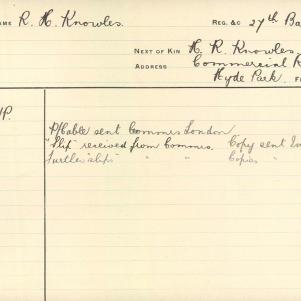 NAME R. H. Knowles. REG. &C 27th Ba
NEXT OF KIN H. R. Knowles
ADDRESS Commercial R
Hyde Park.
P/Cable sent Commrs London
"Slip" received from Commrs. Copy sent
Further "slips" " " Copies "